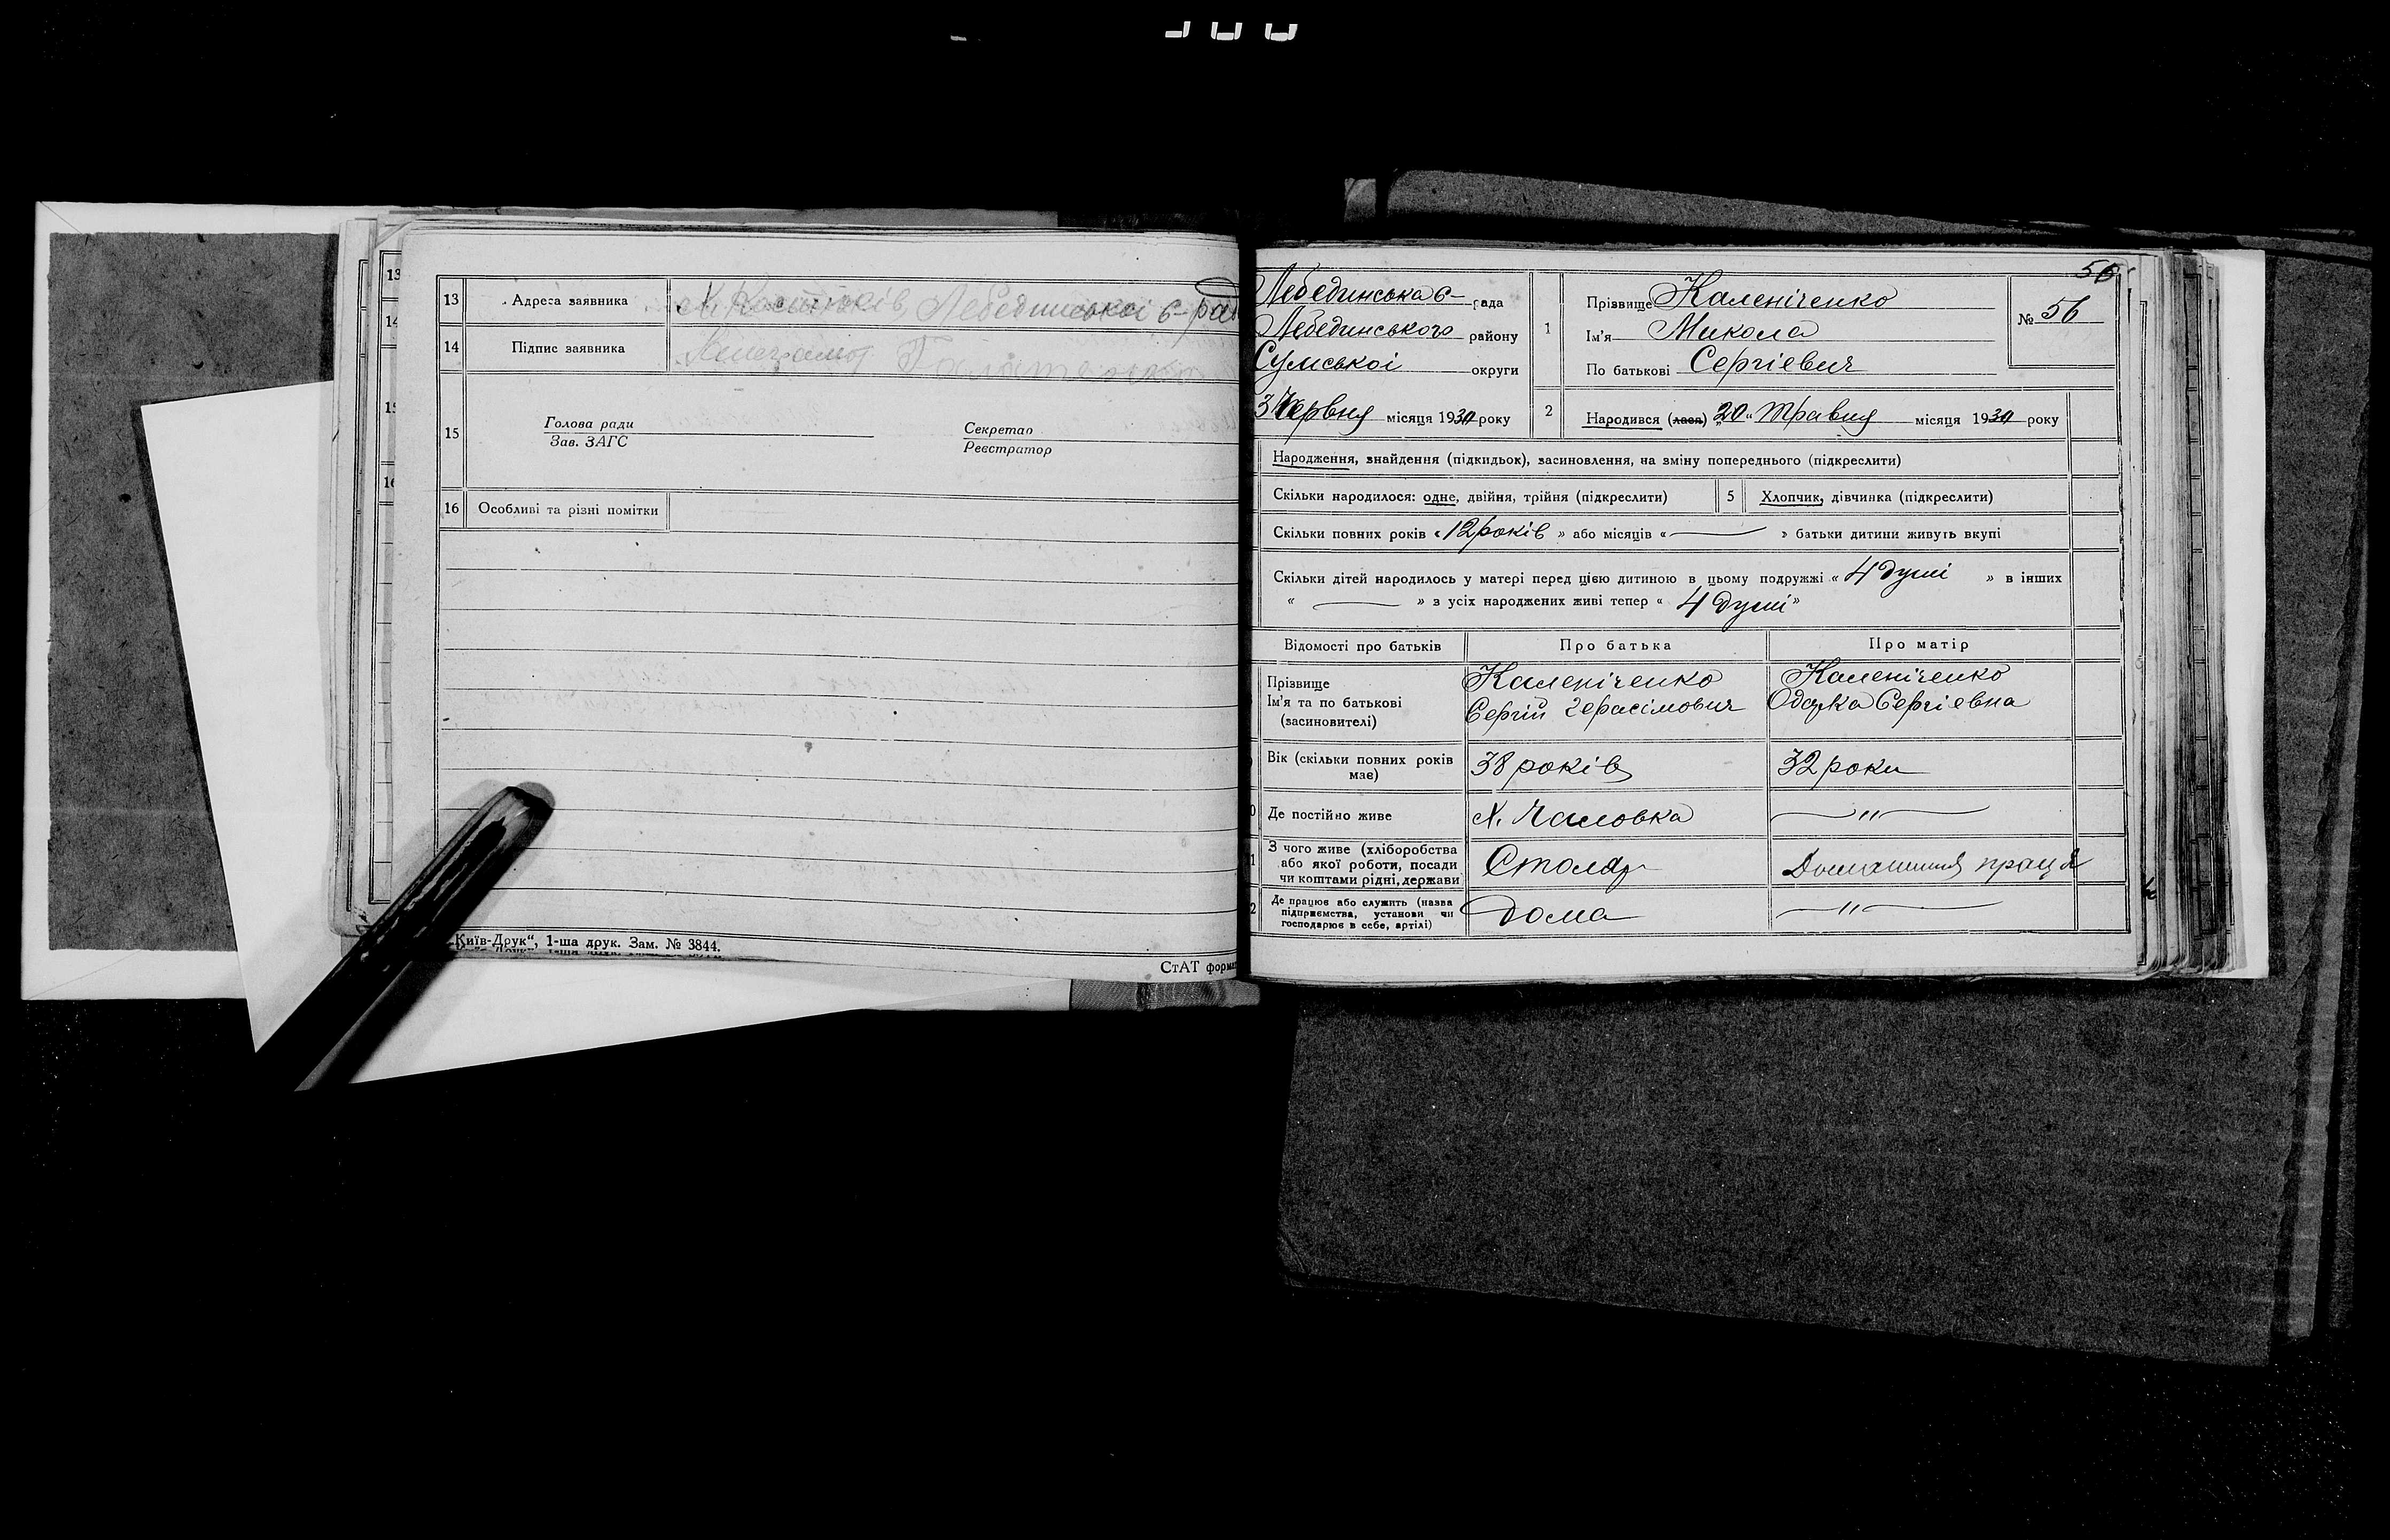 13 Адреса заявника Х. Костюків, Лебединської с-рад
14 Підпис заявника Неграмот
15 Голова ради
Зав. ЗАГС
Секретар
Реєстратор
16 Особливі та різні помітки
„Київ-Друк“, 1-ша друк. Зам. № 3844.
СтАТ форма
56
Лебединська с- рада
Лебединського району
Сумської округи
3 Червня місяця 1930 року
1 Прізвище Каленіченко
Ім'я Микола
По батькові Сергієвич
№ 56
2 Народився (лася) „20“ Травня місяця 1930 року
Народження, знайдення (підкидьок), засиновлення, на зміну попереднього (підкреслити)
Скільки народилося: одне, двійня, трійня (підкреслити) 5 Хлопчик, дівчинка (підкреслити)
Скільки повних років « 12 років » або місяців « — » батьки дитини живуть вкупі
Скільки дітей народилось у матері перед цією дитиною в цьому подружжі « 4 душі » в інших
« — » з усіх народжених живі тепер « 4 душі »
Відомості про батьків Про батька Про матір
Прізвище Каленіченко Каленіченко
Ім'я та по батькові Сергій Герасімович Одарка Сергієвна
(засиновителі)
Вік (скільки повних років має) 38 років 32 роки
Де постійно живе х. Чаловка —„—
З чого живе (хліборобства
або якої роботи, посади
чи коштами рідні, держави Столяр Домашння праця
Де працює або служить (назва
підприємства, установи чи
господарює в себе, артілі) Дома —„—